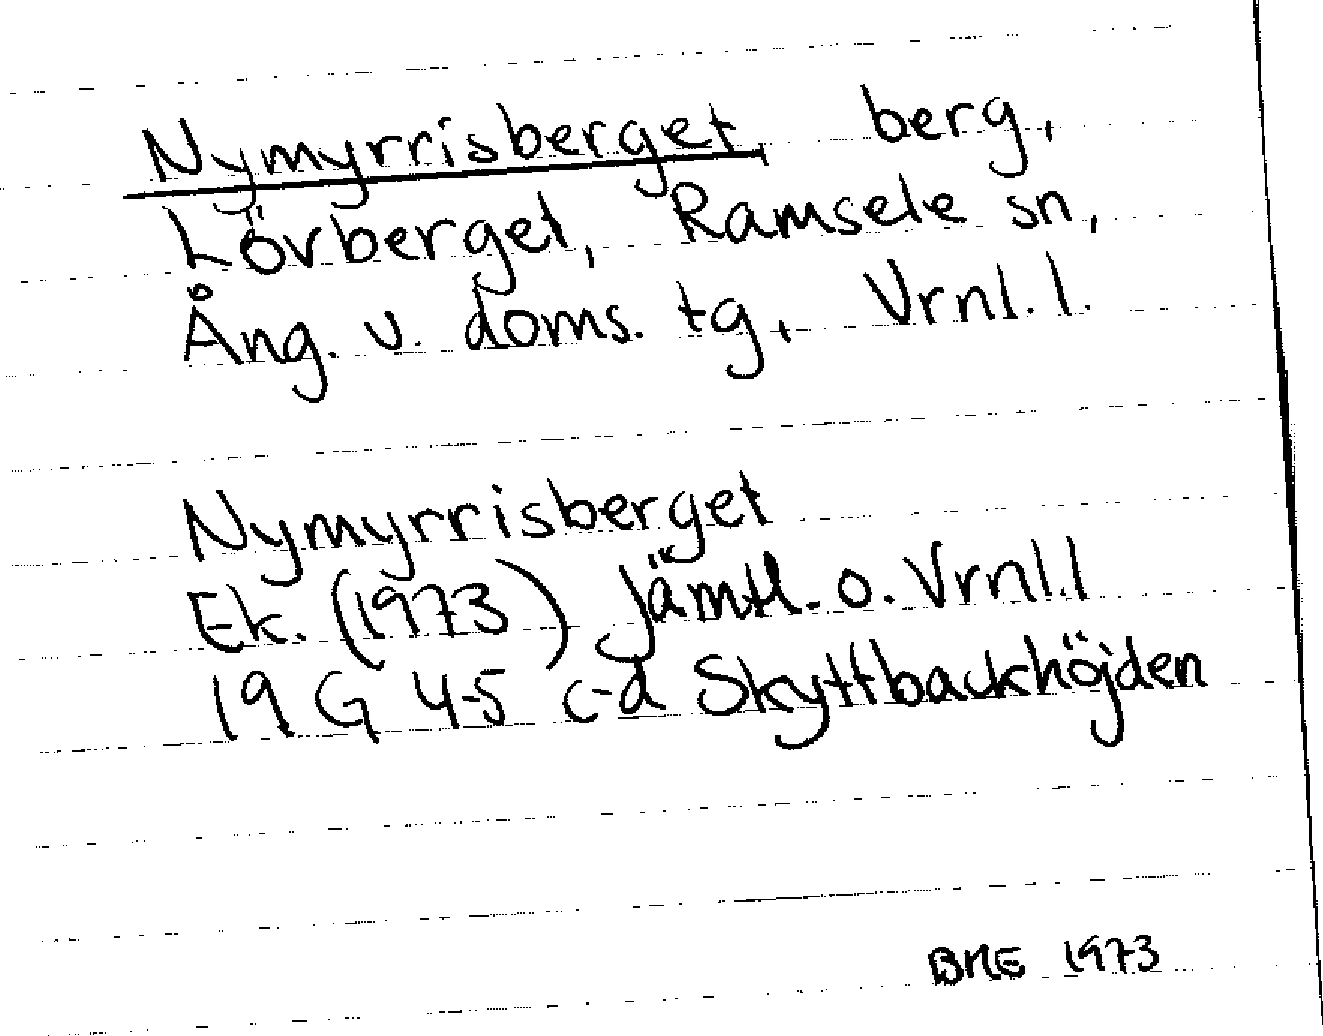 Nymyrrisberget, berg,
Lövberget, Ramsele sn,
Ång. v. doms. tg, Vrnl. l.
Nymyrrisberget
Ek. (1973) Jämtl. o. Vrnl.l
19 G 4-5 c-d Skyttbackhöjden
BME 1973